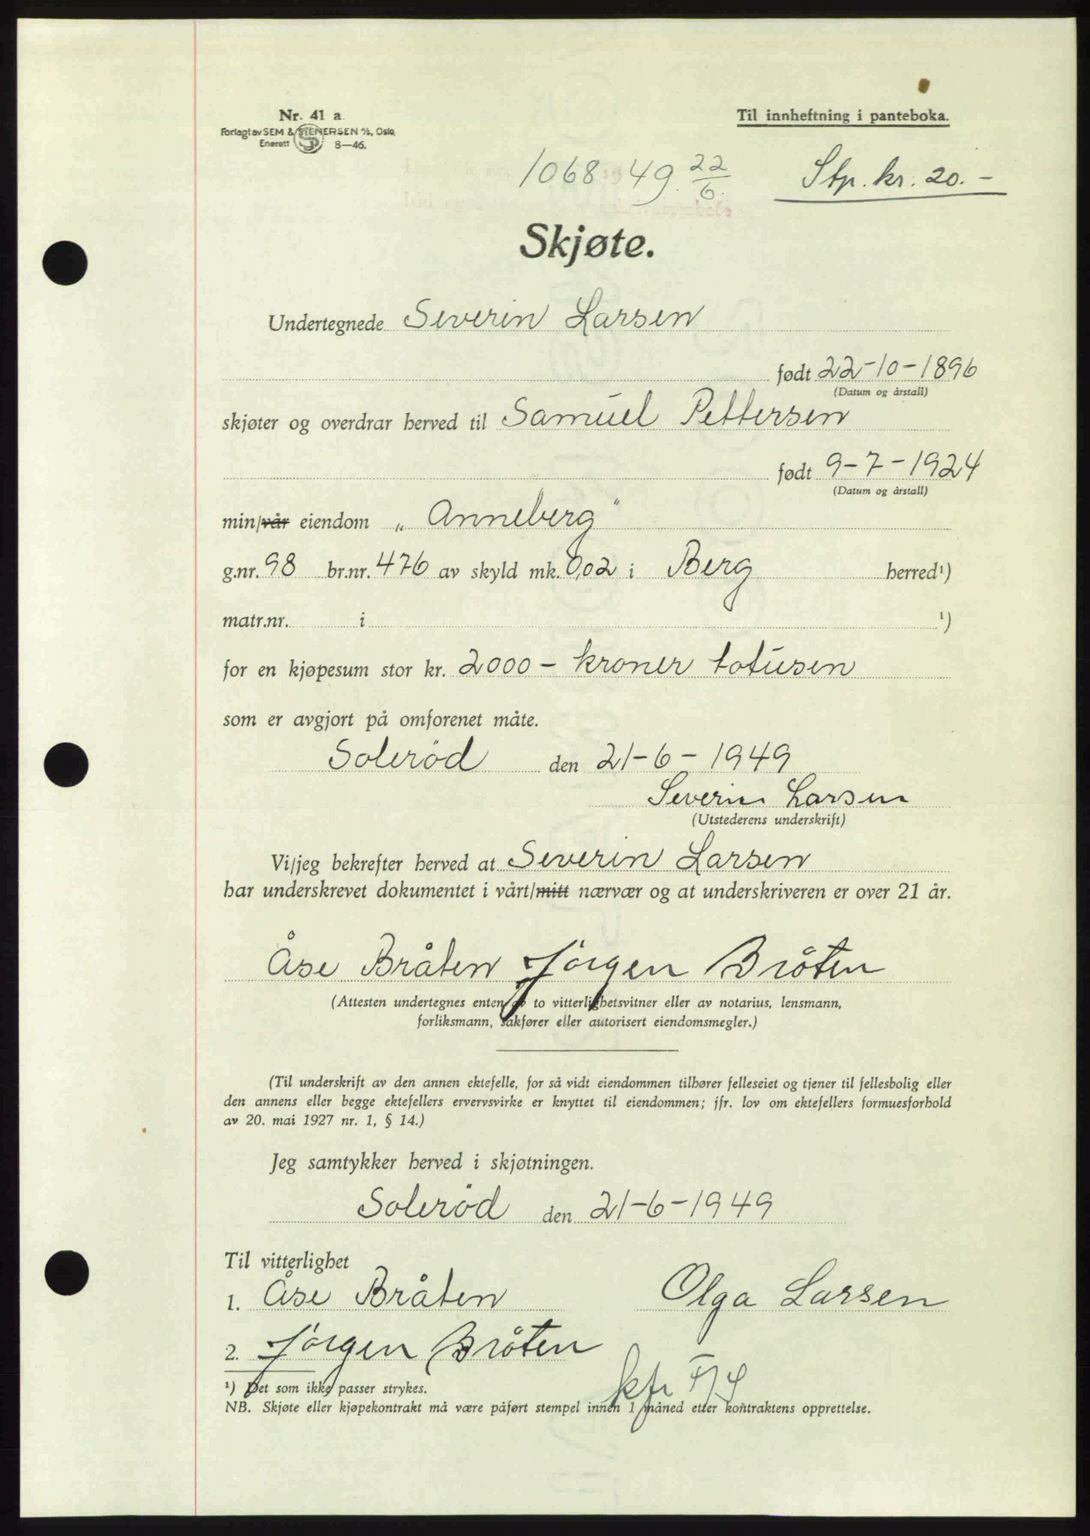 Nr. 41 a
Til innheftning i panteboka.
Forlagt av SEM & STENERSEN A/S, Oslo
Enerett 8—46.
1068-49. 22/6.
Stp. kr. 20.-
Skjøte.
Undertegnede Severin Larsen
født 22-10-1896
(Datum og årstall)
skjøter og overdrar herved til Samuel Pettersen
født 9-7-1924
(Datum og årstall)
min/vår eiendom „Anneberg"
g.nr. 98 br.nr. 476 av skyld mk. 0,02 i Berg herred¹)
matr.nr. i ¹)
for en kjøpesum stor kr. 2000 - kroner totusen
som er avgjort på omforenet måte.
Solerød den 21-6-1949
Severin Larsen
(Utstederens underskrift)
Vi/jeg bekrefter herved at Severin Larsen
har underskrevet dokumentet i vårt/mitt nærvær og at underskriveren er over 21 år.
Åse Bråten Jörgen Bröten
(Attesten undertegnes enten av to vitterlighetsvitner eller av notarius, lensmann,
forliksmann, sakfører eller autorisert eiendomsmegler.)
(Til underskrift av den annen ektefelle, for så vidt eiendommen tilhører felleseiet og tjener til fellesbolig eller
den annens eller begge ektefellers ervervsvirke er knyttet til eiendommen; jfr. lov om ektefellers formuesforhold
av 20. mai 1927 nr. 1, § 14.)
Jeg samtykker herved i skjøtningen.
Solerød den 21-6-1949
Til vitterlighet
1. Åse Bråten Olga Larsen
2. Jörgen Bröten
¹) Det som ikke passer strykes.
NB. Skjøte eller kjøpekontrakt må være påført stempel innen 1 måned etter kontraktens opprettelse.